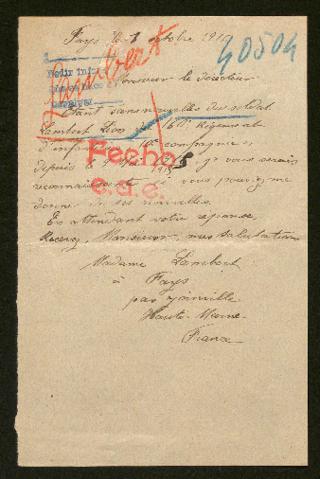 Fays le 1 octobre 191
40504
Lambert
Monsieur le directeur
Etant sans nouvelles du soldat
Lambert Léon 16 Régiment
d'infanterie compagnie
depuis le 191 je vous serais
Fecho
e.a.e.
reconnaissante si vous pouviez me
donner de ses nouvelles.
En attendant votre réponse,
Recevez, Monsieur, mes salutations
Madame Lambert
à Fays
par Joinville
Haute-Marne
France